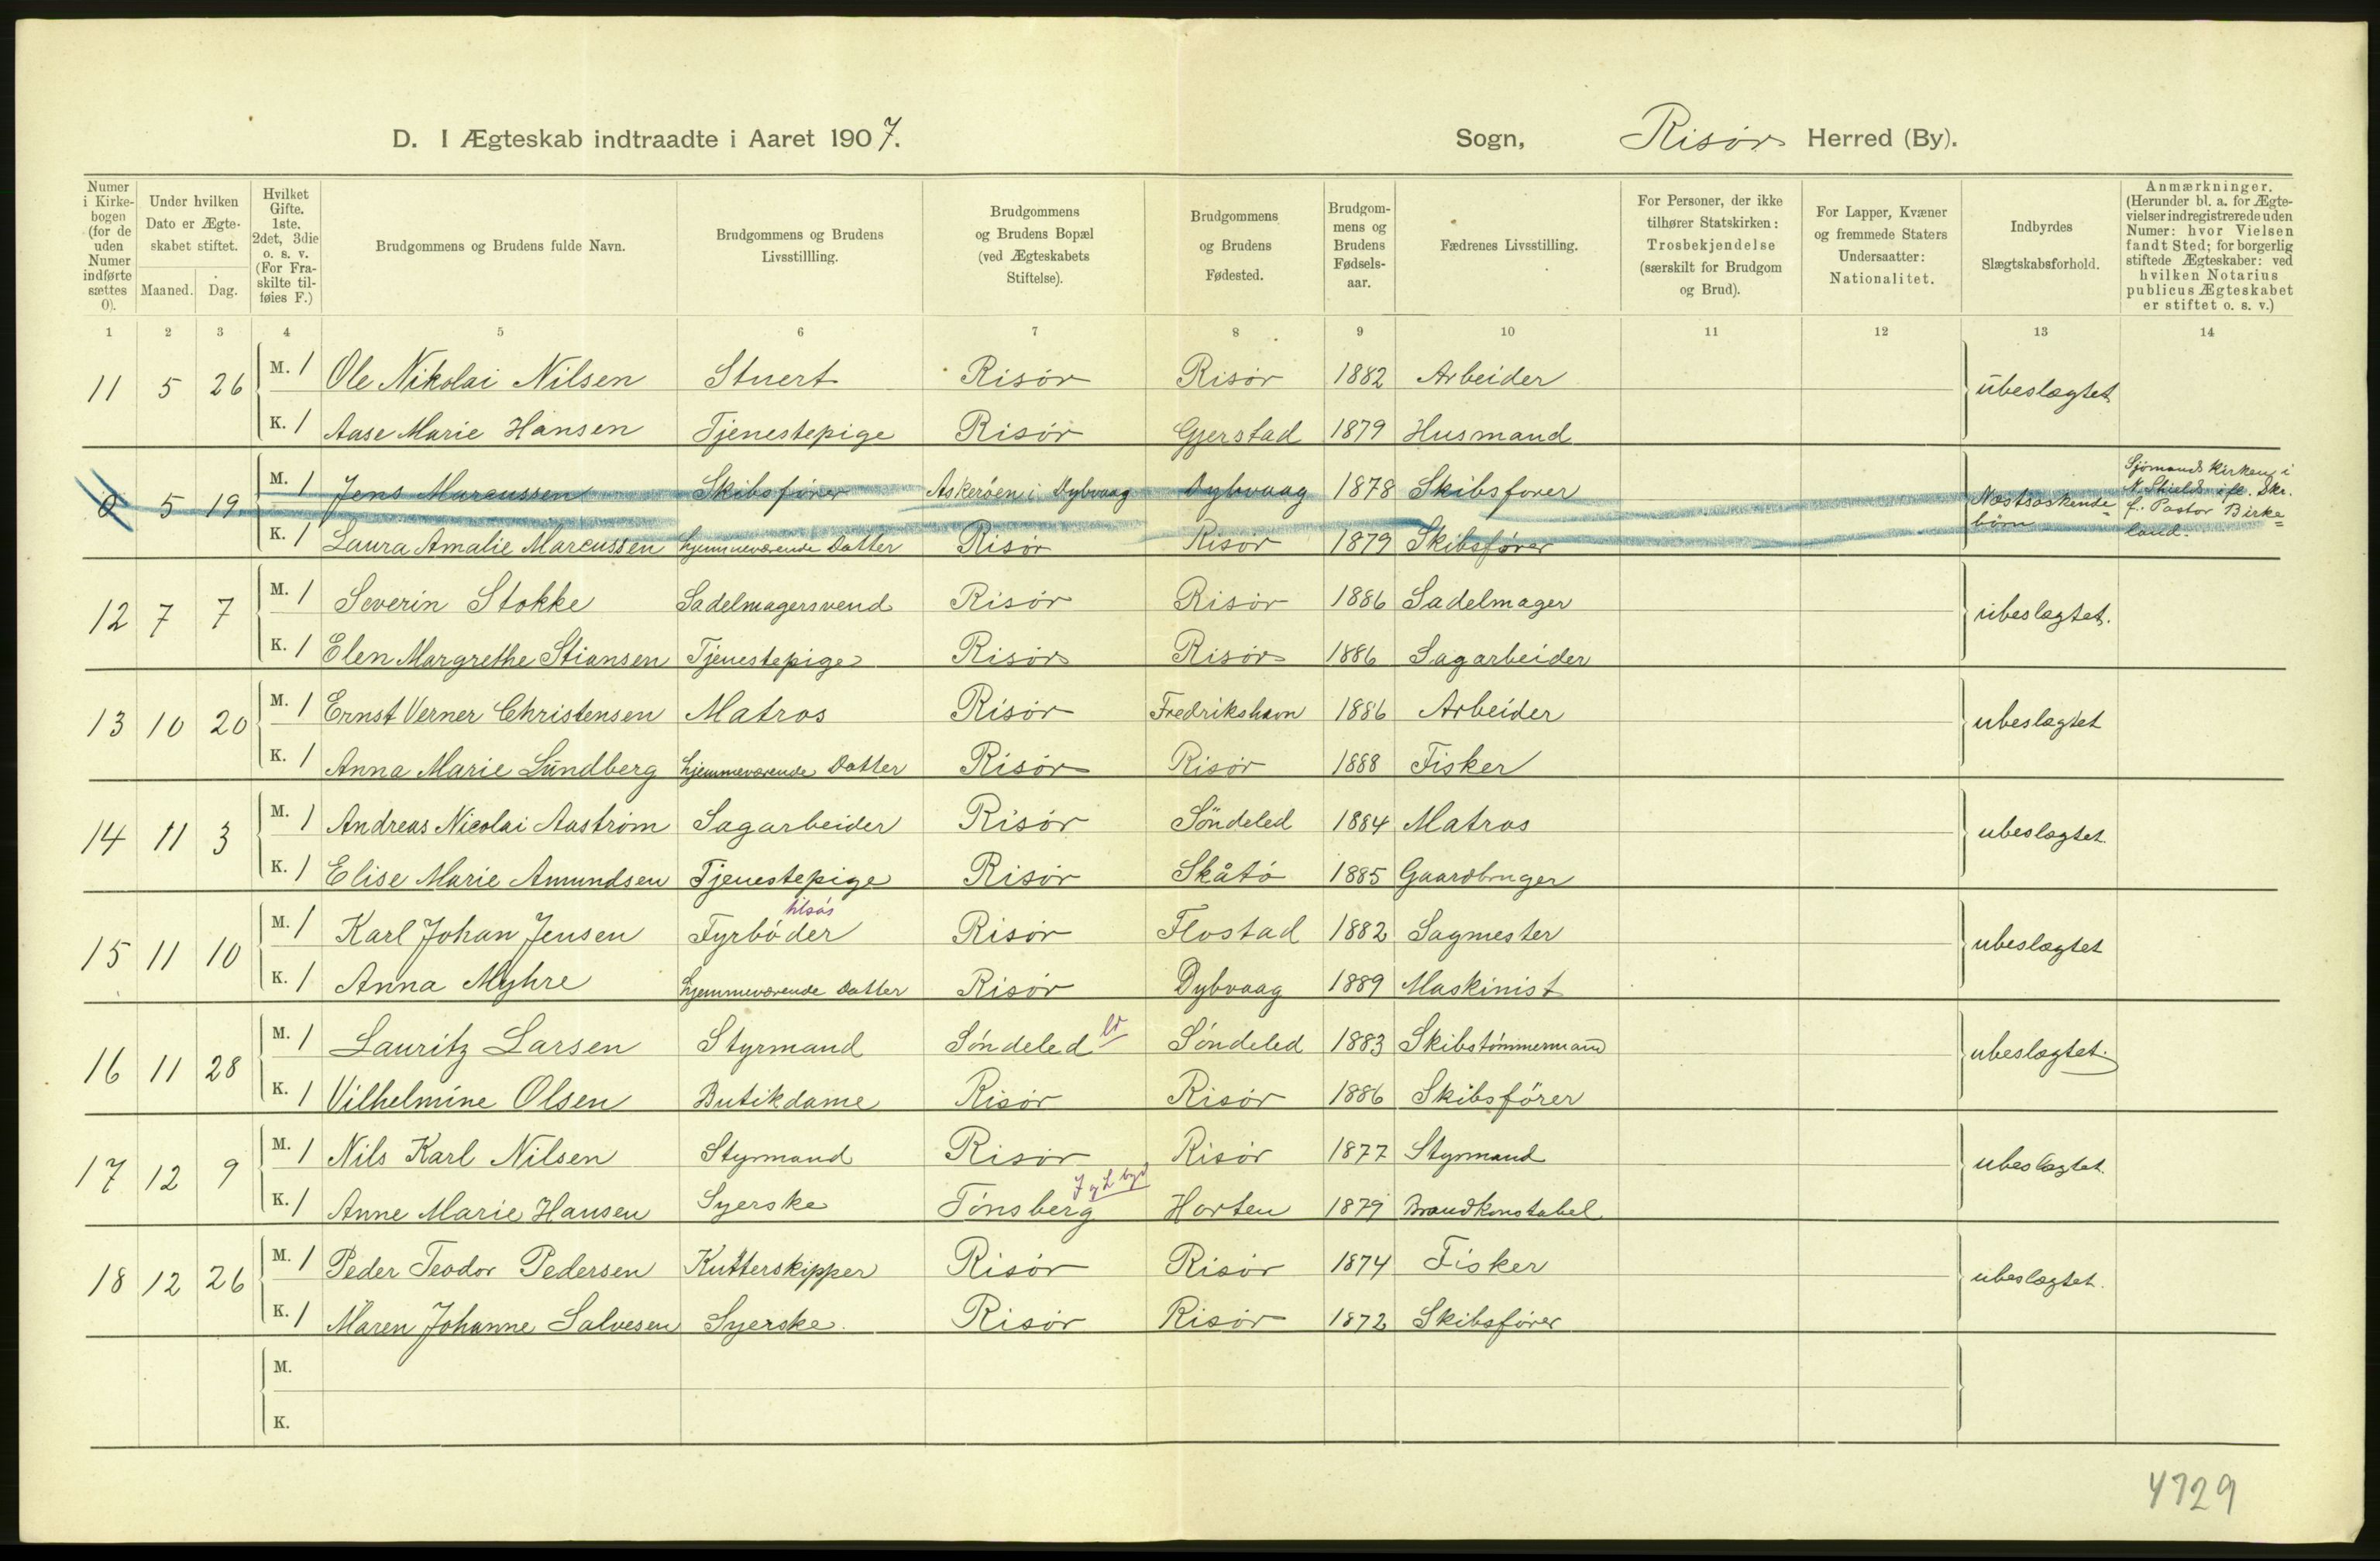 D. I Ægteskab indtraadte i Aaret 1907. Sogn, Risør Herred (By).
Numer i Kirkebogen (for de uden Numer indførte sættes 0).
Under hvilken Dato er Ægteskabet stiftet.
Maaned. Dag.
Hvilket Gifte. 1ste. 2det, 3die o. s. v. (For Fraskilte tilføies F.)
Brudgommens og Brudens fulde Navn.
Brudgommens og Brudens Livsstillling.
Brudgommens og Brudens Bopæl (ved Ægteskabets Stiftelse).
Brudgommens og Brudens Fødested.
Brudgommens og Brudens Fødselsaar.
Fædrenes Livsstilling.
For Personer, der ikke tilhører Statskirken: Trosbekjendelse (særskilt for Brudgom og Brud).
For Lapper, Kvæner og fremmede Staters Undersaatter: Nationalitet.
Indbyrdes Slægtskabsforhold.
Anmærkninger. (Herunder bl. a. for Ægtevielser indregistrerede uden Numer: hvor Vielsen fandt Sted; for borgerlig stiftede Ægteskaber: ved hvilken Notarius publicus Ægteskabet er stiftet o. s. v.)
1 2 3 4 5 6 7 8 9 10 11 12 13 14
11 5 26 M. 1 Ole Nikolai Nilsen Stuert Risør Risør 1882 Arbeider ubeslægtet
K. 1 Aase Marie Hansen Tjenestepige Risør Gjerstad 1879 Husmand
0 5 19 M. 1 Jens Marcussen Skibsfører Askerøen i Dybvaag Dybvaag 1878 Skibsfører Næstsøskendebørn Sjømandskirken i N. Shields ifl. Skr. f. Pastor Birkeland.
K. 1 Laura Amalie Marcussen hjemmeværende Datter Risør Risør 1879 Skibsfører
12 7 7 M. 1 Severin Stokke Sadelmagersvend Risør Risør 1886 Sadelmager ubeslægtet.
K. 1 Elen Margrethe Stiansen Tjenestepige Risør Risør 1886 Sagarbeider
13 10 20 M. 1 Ernst Verner Christensen Matros Risør Fredrikshavn 1886 Arbeider ubeslægtet
K. 1 Anna Marie Lundberg hjemmeværende Datter Risør Risør 1888 Fisker
14 11 3 M. 1 Andreas Nicolai Aastrøm Sagarbeider Risør Søndeled 1884 Matros ubeslægtet.
K. 1 Elise Marie Amundsen Tjenestepige Risør Skåtø 1885 Gaardbruger
15 11 10 M. 1 Karl Johan Jensen Fyrbøder tilsøs Risør Flostad 1882 Sagmester ubeslægtet
K. 1 Anna Myhre hjemmeværende Datter Risør Dybvaag 1889 Maskinist
16 11 28 M. 1 Lauritz Larsen Styrmand Søndeled Søndeled 1883 Skibstømmermand ubeslægtet.
K. 1 Vilhelmine Olsen Butikdame Risør Risør 1886 Skibsfører
17 12 9 M. 1 Nils Karl Nilsen Styrmand Risør Risør 1877 Styrmand ubeslægtet.
K. 1 Anne Marie Hansen Syerske Tønsberg Horten 1879 Brandkonstabel
18 12 26 M. 1 Peder Teodor Pedersen Kutterskipper Risør Risør 1874 Fisker ubeslægtet.
K. 1 Maren Johanne Salvesen Syerske. Risør Risør 1872 Skibsfører
M.
K.
4729